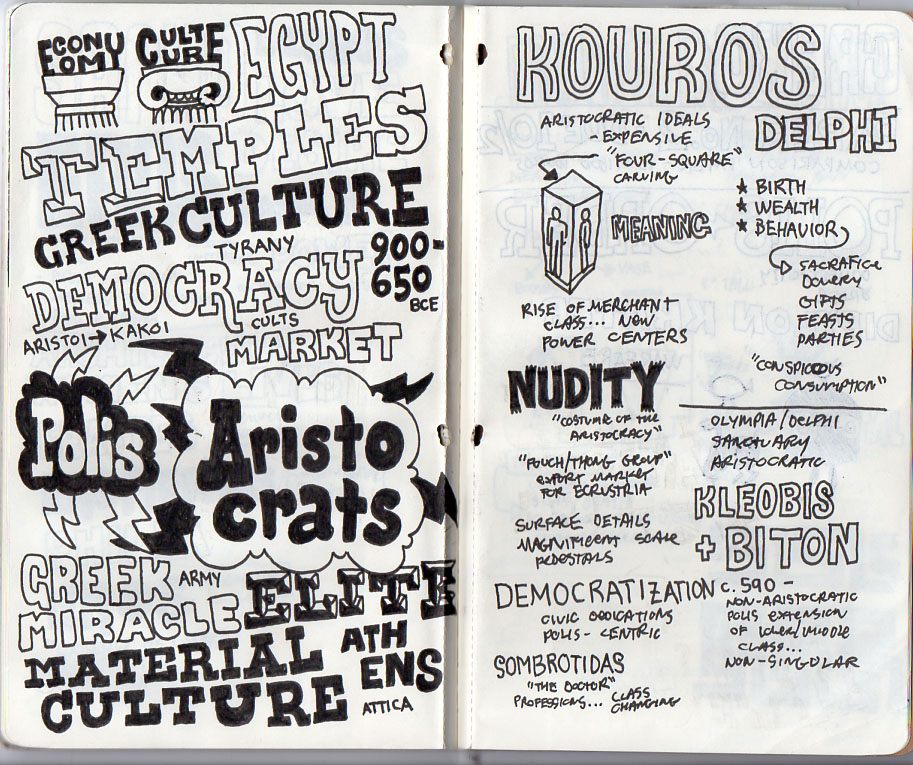 ECONY
EOMY
CULT
CURE
EGYPT
TEMPLES
GREEK CULTURE
TYRANY
900-
650
BCE
DEMOCRACY
CULTS
ARISTOI → KAKOI
MARKET
Polis
Aristo
crats
GREEK
ARMY
MIRACLE
ELITE
MATERIAL
CULTURE
ATH
ENS
ATTICA
KOUROS
ARISTOCRATIC IDEALS
- EXPENSIVE
"FOUR-SQUARE"
CARVING
MEANING
RISE OF MERCHANT
CLASS... NOW
POWER CENTERS
DELPHI
★ BIRTH
★ WEALTH
★ BEHAVIOR
SACRAFICE
DOWERY
GIFTS
FEASTS
PARTIES
"CONSPICOUS
CONSUMPTION"
NUDITY
"COSTUME OF THE
ARISTOCRACY"
"POUCH/THONG GROUP"
EXPORT MARKET
FOR ECRUSTRIA
SURFACE DETAILS
MAGNIFICENT SCALE
PEDESTALS
OLYMPIA/DELPHI
SANCTUARY
ARISTOCRATIC
KLEOBIS
+ BITON
DEMOCRATIZATION c. 590 -
CIVIC
POLIS - CENTRIC
NON-ARISTOCRATIC
POLIS EXTENSION
OF LOWER/MIDDLE
CLASS...
NON-SINGULAR
SOMBROTIDAS
"THE DOCTOR"
PROFESSIONS... CLASS
CHANGING